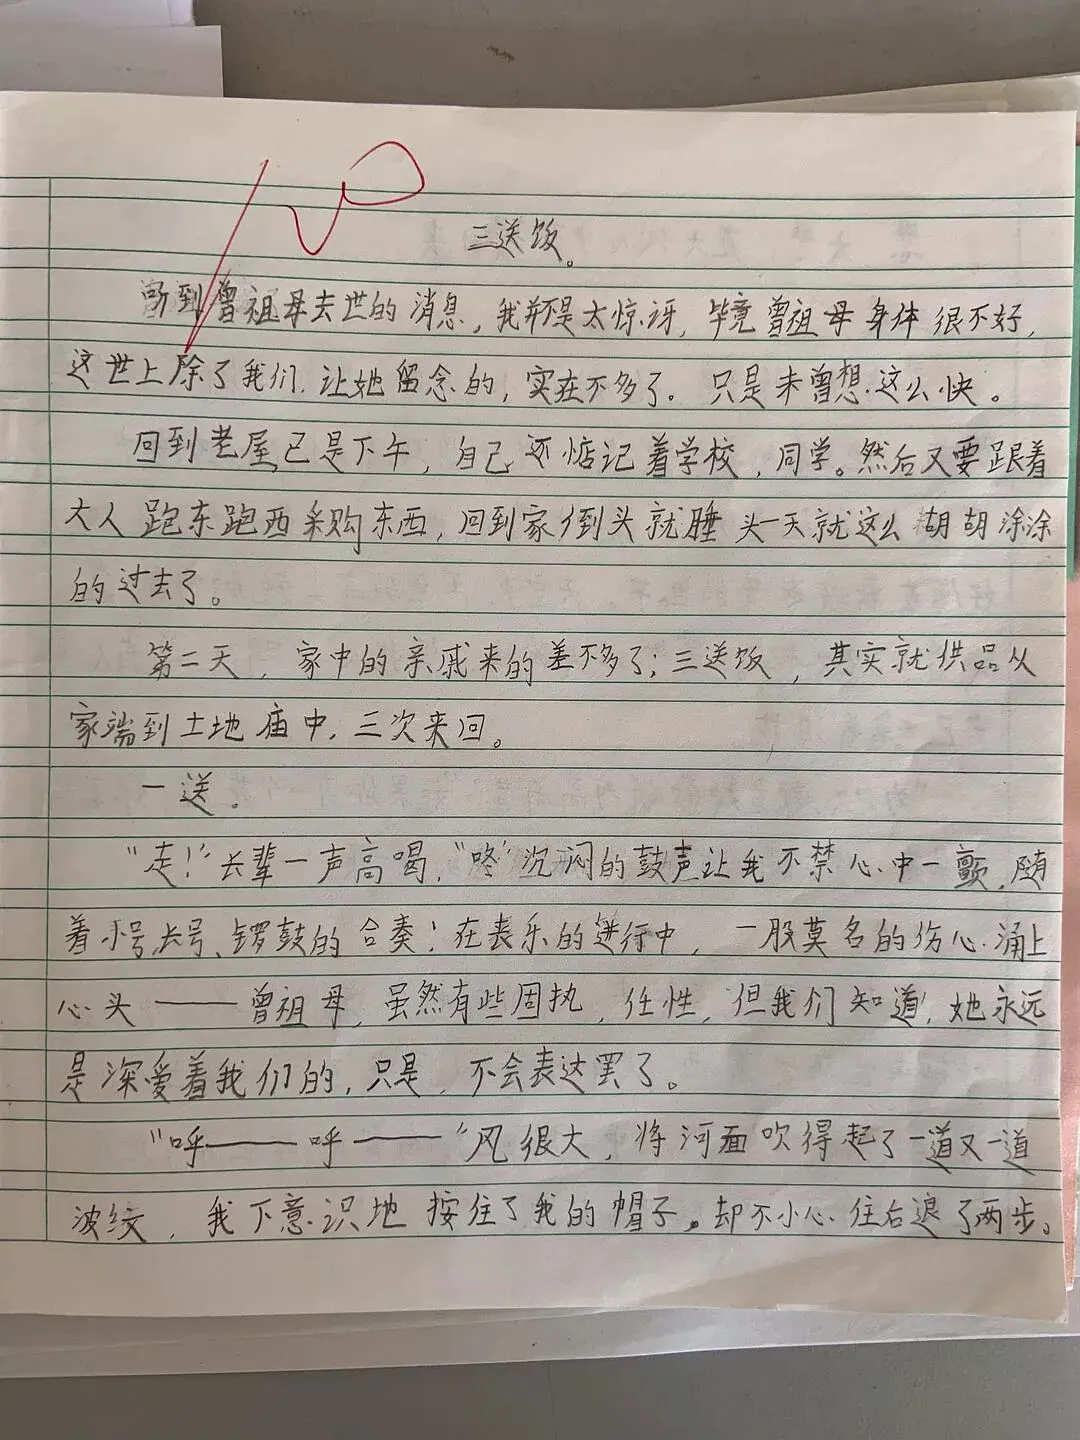 三送饭。
听到曾祖母去世的消息，我并不是太惊讶，毕竟曾祖母身体很不好，
这世上除了我们，让她留念的，实在不多了。只是未曾想这么快。
回到老屋已是下午，自己还惦记着学校，同学。然后又要跟着
大人跑东跑西采购东西，回到家倒头就睡头一天就这么糊胡涂涂
的过去了。
第二天，家中的亲戚来的差不多了；三送饭，其实就供品从
家端到土地庙中，三次来回。
一送。
“走！”长辈一声高喝，“咚”沉闷的鼓声让我不禁心中一颤，随
着小号、长号、锣鼓的合奏！在丧乐的进行中，一股莫名的伤心涌上
心头——曾祖母，虽然有些固执，任性，但我们知道，她永远
是深爱着我们的，只是，不会表达罢了。
“呼——呼——”风很大，将河面吹得起了一道又一道
波纹，我下意识地按住了我的帽子。却不小心往后退了两步。